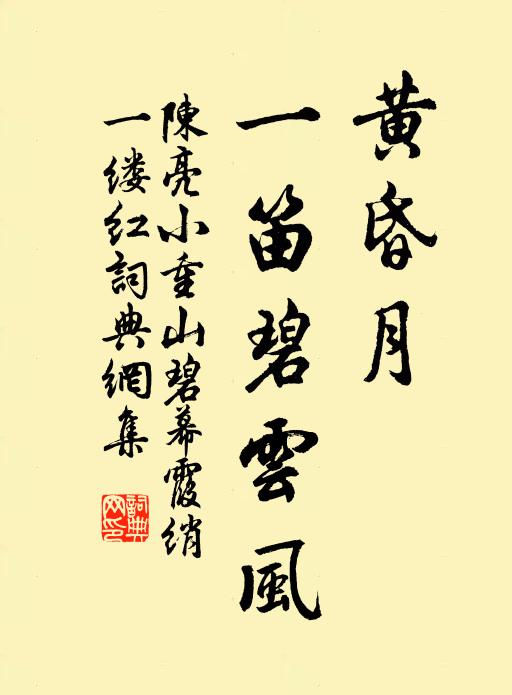 黃昏月
一笛碧雲風
陳亮小重山碧幕霞綃
一缕紅詞典網集
詞典网印